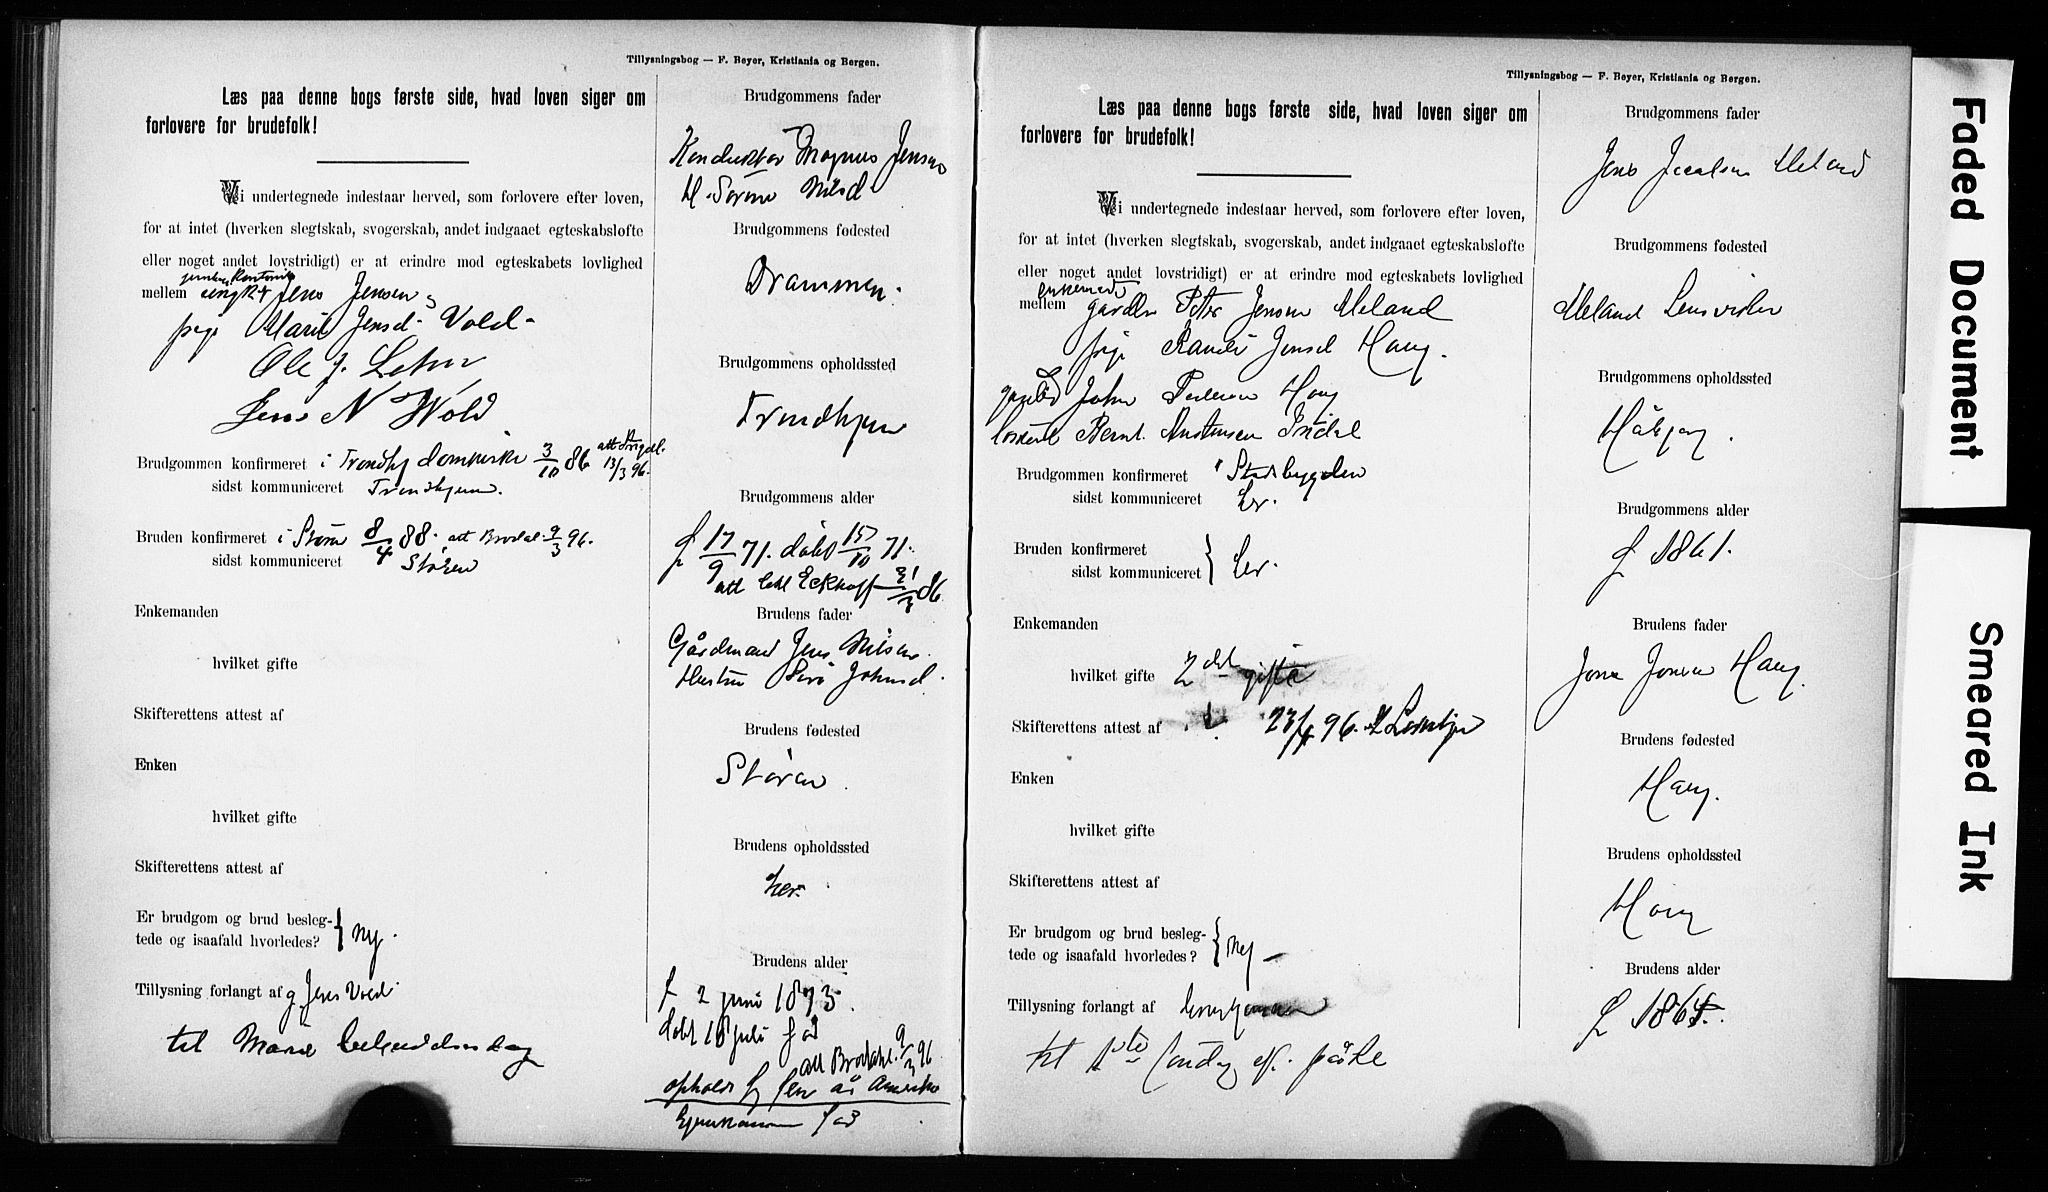 Tillysningsbog — F. Beyer, Kristiania og Bergen.
Læs paa denne bogs første side, hvad loven siger om
forlovere for brudefolk!
Vi undertegnede indestaar herved, som forlovere efter loven,
for at intet (hverken slegtskab, svogerskab, andet indgaaet egteskabsløfte
eller noget andet lovstridigt) er at erindre mod egteskabets lovlighed
mellem Jens Jensen
pige Marit Jensd. Vold
Ole J.
Jens N Wold
Brudgommen konfirmeret i Trondhj domkirke 3/10 86 13/3 96.
sidst kommuniceret Trondhjem.
Bruden konfirmeret i Støren 8/4 88. att Brodal 9/3 96.
sidst kommuniceret Støren
Enkemanden
hvilket gifte
Skifterettens attest af
Enken
hvilket gifte
Skifterettens attest af
Er brudgom og brud besleg-
tede og isaafald hvorledes? } nej.
Tillysning forlangt af g Jens Vold
til Mariæ bebudelsesdag
Brudgommens fader
Konduktør Magnus Jensen
H. Sørine Nilsd
Brudgommens fødested
Drammen.
Brudgommens opholdssted
Trondhjem
Brudgommens alder
f 17/9 71. døbt 15/10 71.
att Eckhoff 31/3 86
Brudens fader
Gårdmand Jens Nilsen.
Hustru Siri Johnsd.
Brudens fødested
Støren.
Brudens opholdssted
her.
Brudens alder
f 2 juni 1873.
døbt 18 juli
att Brodahl 9/3 96
ophold år Amerika
Tillysningsbog — F. Beyer, Kristiania og Bergen.
Læs paa denne bogs første side, hvad loven siger om
forlovere for brudefolk!
Vi undertegnede indestaar herved, som forlovere efter loven,
for at intet (hverken slegtskab, svogerskab, andet indgaaet egteskabsløfte
eller noget andet lovstridigt) er at erindre mod egteskabets lovlighed
enkemand
mellem gårdbr Peter Jensen Meland
pige Randi Jonsd Haug.
John Pedersen Haug
Bernt
Brudgommen konfirmeret i Stadsbygden
sidst kommuniceret her.
Bruden konfirmeret
sidst kommuniceret } her.
Enkemanden
hvilket gifte 2det gifte
Skifterettens attest af 23/4 96.
Enken
hvilket gifte
Skifterettens attest af
Er brudgom og brud besleg-
tede og isaafald hvorledes? } nej
Tillysning forlangt af brudgommen
til 1ste søndag eft. påske
Brudgommens fader
Jens Jacobsen Meland
Brudgommens fødested
Meland Lensviken
Brudgommens opholdssted
Brudgommens alder
f 1861.
Brudens fader
Jon Jonsen Haug.
Brudens fødested
Haug.
Brudens opholdssted
Haug
Brudens alder
f 1864.
Faded Document
Smeared Ink